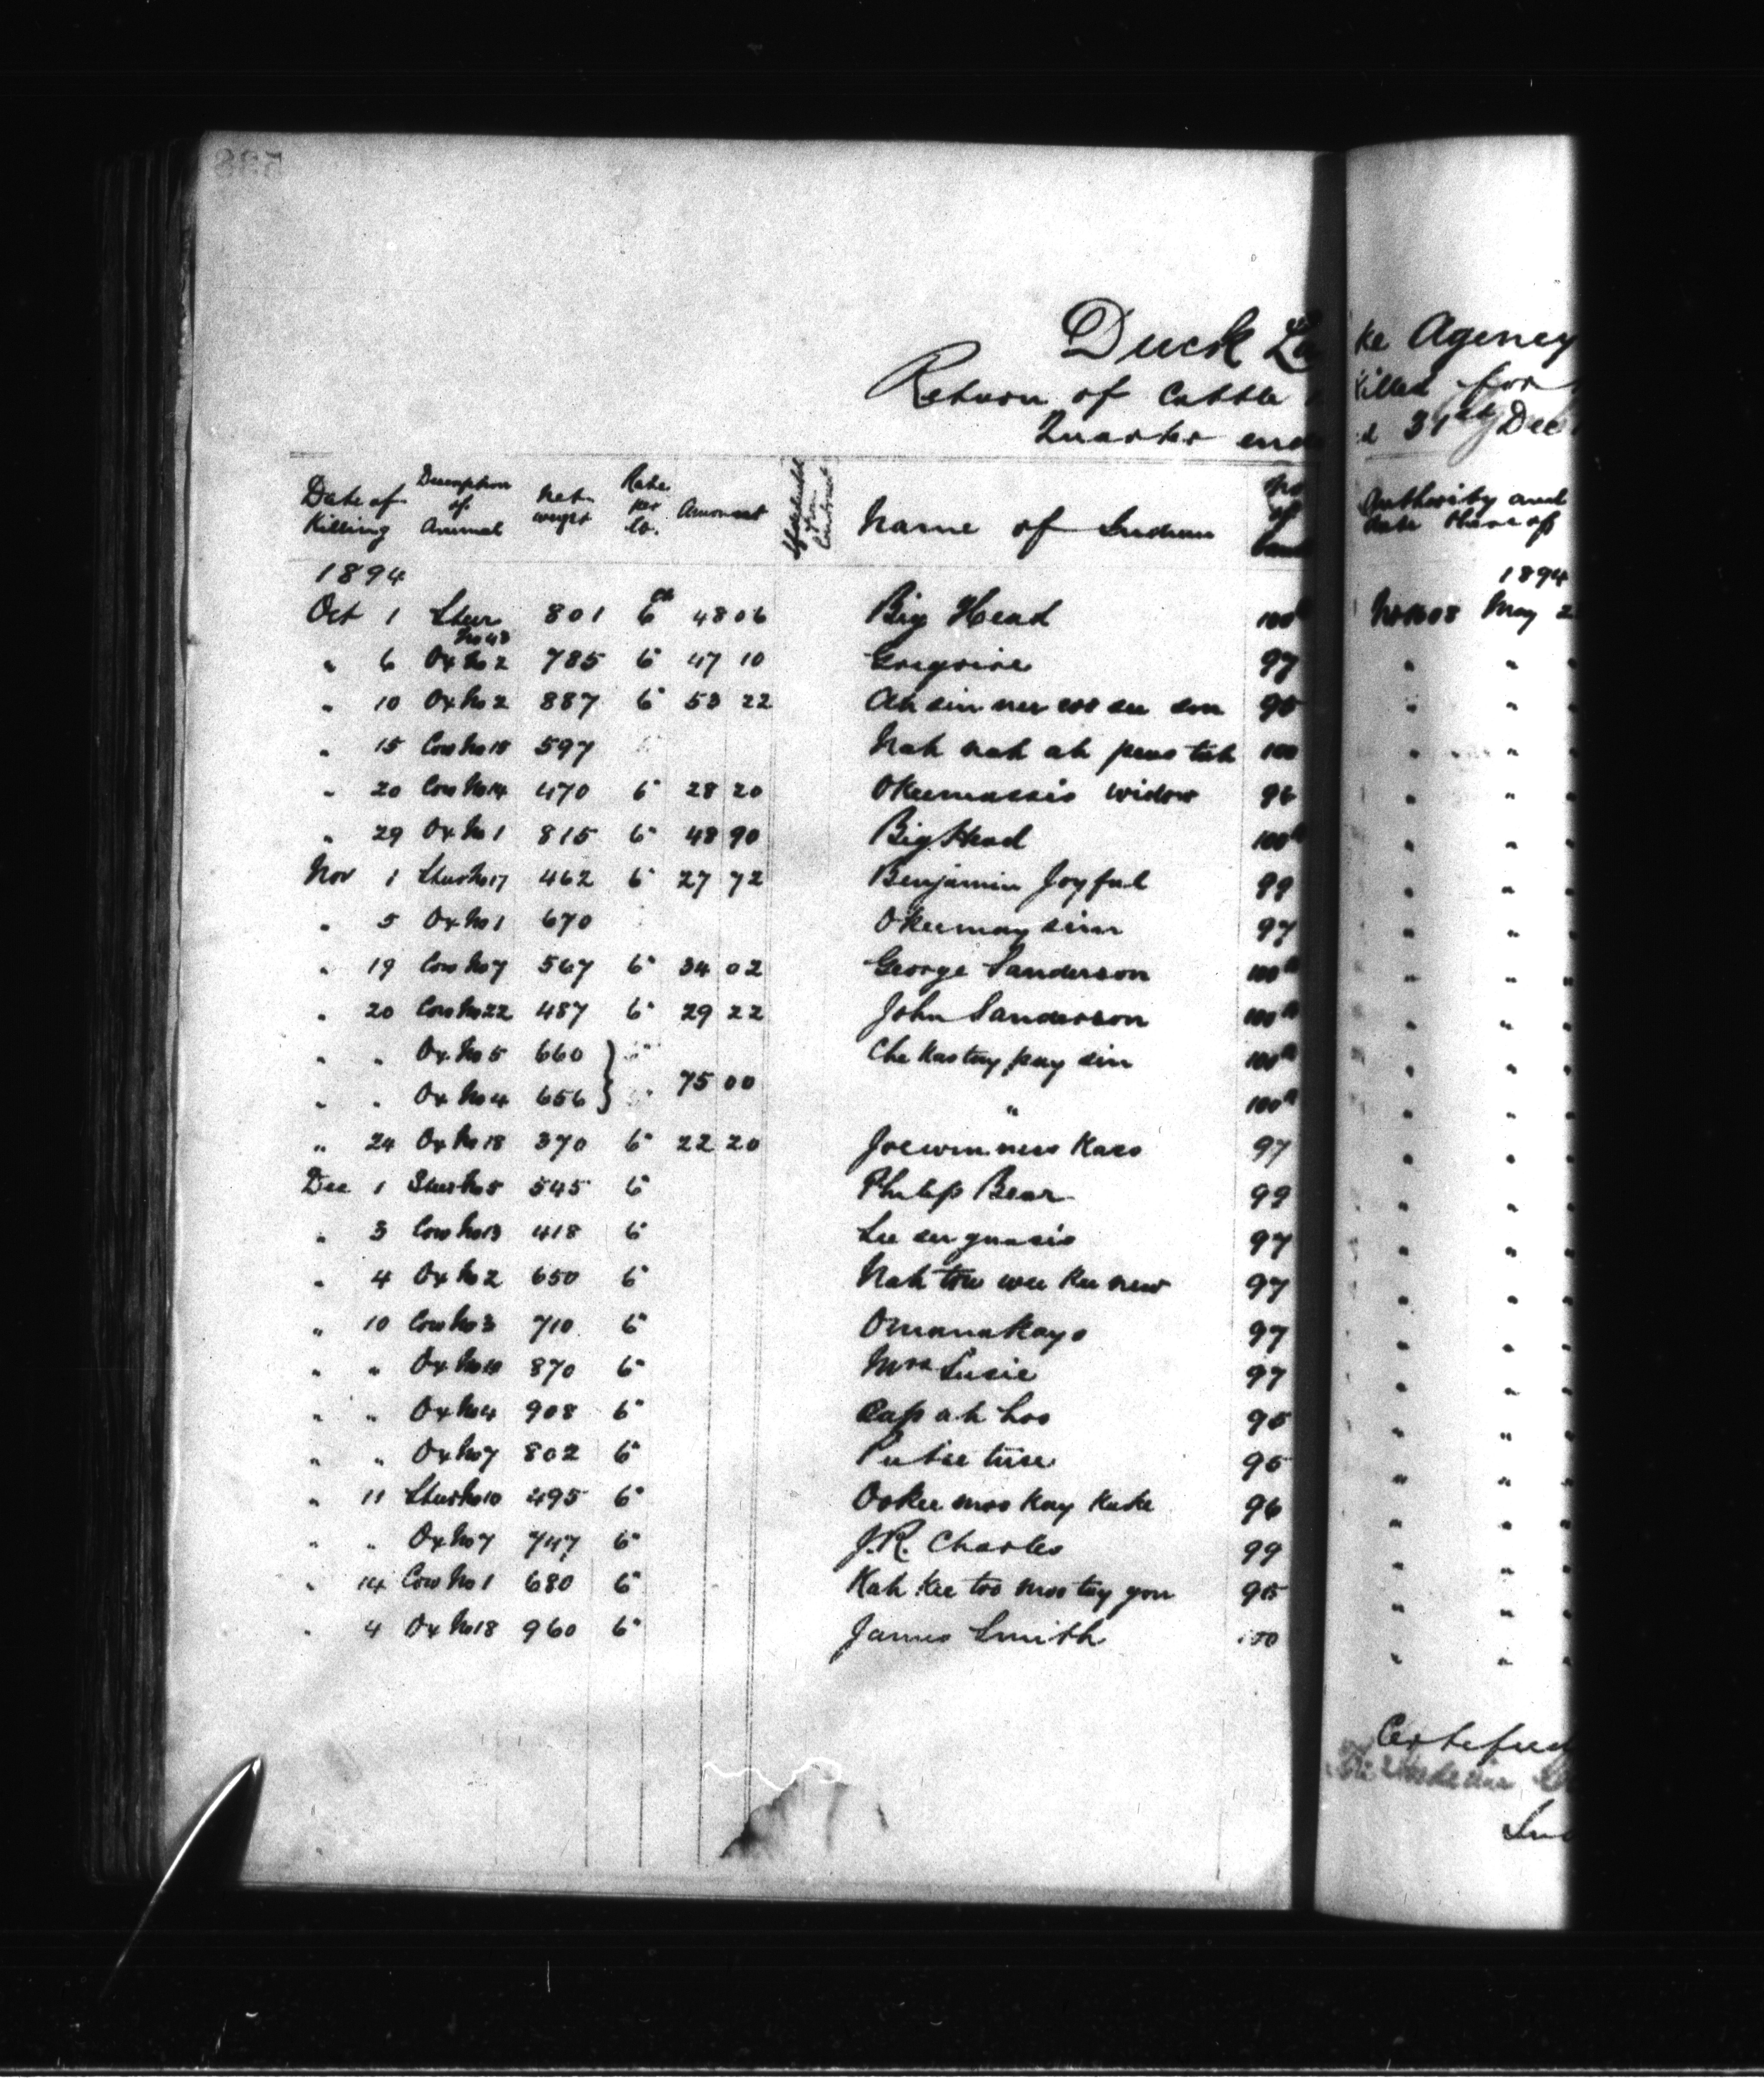 Duck La ke Agency
Return of Cattle killed for
Quarter end d 31st Dec
Date of Killing Description of Animal Net weight Rate per lb. Amount Name of Indian No of Band Authority and date thereof
1894 1894
Oct 1 Steer No 43 801 6cts 48 06 Big Head 100A No 1608 May 2
" 6 Ox No 2 785 6" 47 10 Gregoire 97 " " "
" 10 Ox No 2 887 6" 53 22 Ah sin new son 95 " " "
" 15 Cow No 15 597 Nah nah ah pews tah 100 " " "
" 20 Cow No 14 470 6" 28 20 Okeemassis widow 96 " " "
" 29 Ox No 1 815 6" 48 90 Big Head 100A " " "
Nov 1 Steer No 17 462 6" 27 72 Benjamin Joyful 99 " " "
" 5 Ox No 1 670 Okeemay sim 97 " " "
" 19 Cow No 7 567 6" 34 02 George Sanderson 100A " " "
" 20 Cow No 22 487 6" 29 22 John Sanderson 100A " " "
" " Ox No 5 660 Che kas tay pay sin 100A " " "
75 00
" " Ox No 4 656 " 100A " " "
" 24 Ox No 18 370 6" 22 20 97 " " "
Dec 1 Steer No 5 545 6" Philip Bear 99 " " "
" 3 Cow No 13 418 6" 97 " " "
" 4 Ox No 2 650 6" Nah tow wee kee new 97 " " "
" 10 Cow No 3 710 6" Omanakays 97 " " "
" " Ox No 10 870 6" Mrs Susie 97 " " "
" " Ox No 4 908 6" Cap ah hoo 95 " " "
" " Ox No 7 802 6" 95 " " "
" 11 Steer No 10 495 6" Ookee moo kay kuke 96 " " "
" " Ox No 7 747 6" J.R. Charles 99 " " "
" 14 Cow No 1 680 6" Kah kee too moo tay gon 95 " " "
" 4 Ox No 18 960 6" James Smith 100 " " "
Certified
Ind